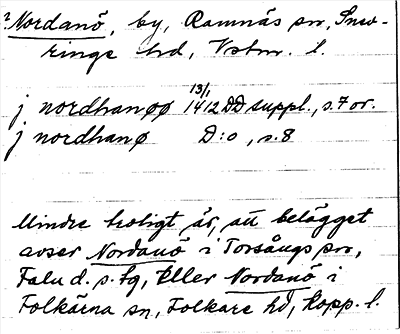 ?Nordanö, by, Ramnäs sn, Snev-
ringe hd, Vstm. l.
j nordhanøø 13/1 1412 DD suppl., s. 7 or.
j nordhanø D:o, s. 8
Mindre troligt är, att belägget
avser Nordanö i Torsångs sn,
Falu d. s. tg, Eller Nordanö i
Folkärna sn, Folkare hd, Kopp. l.